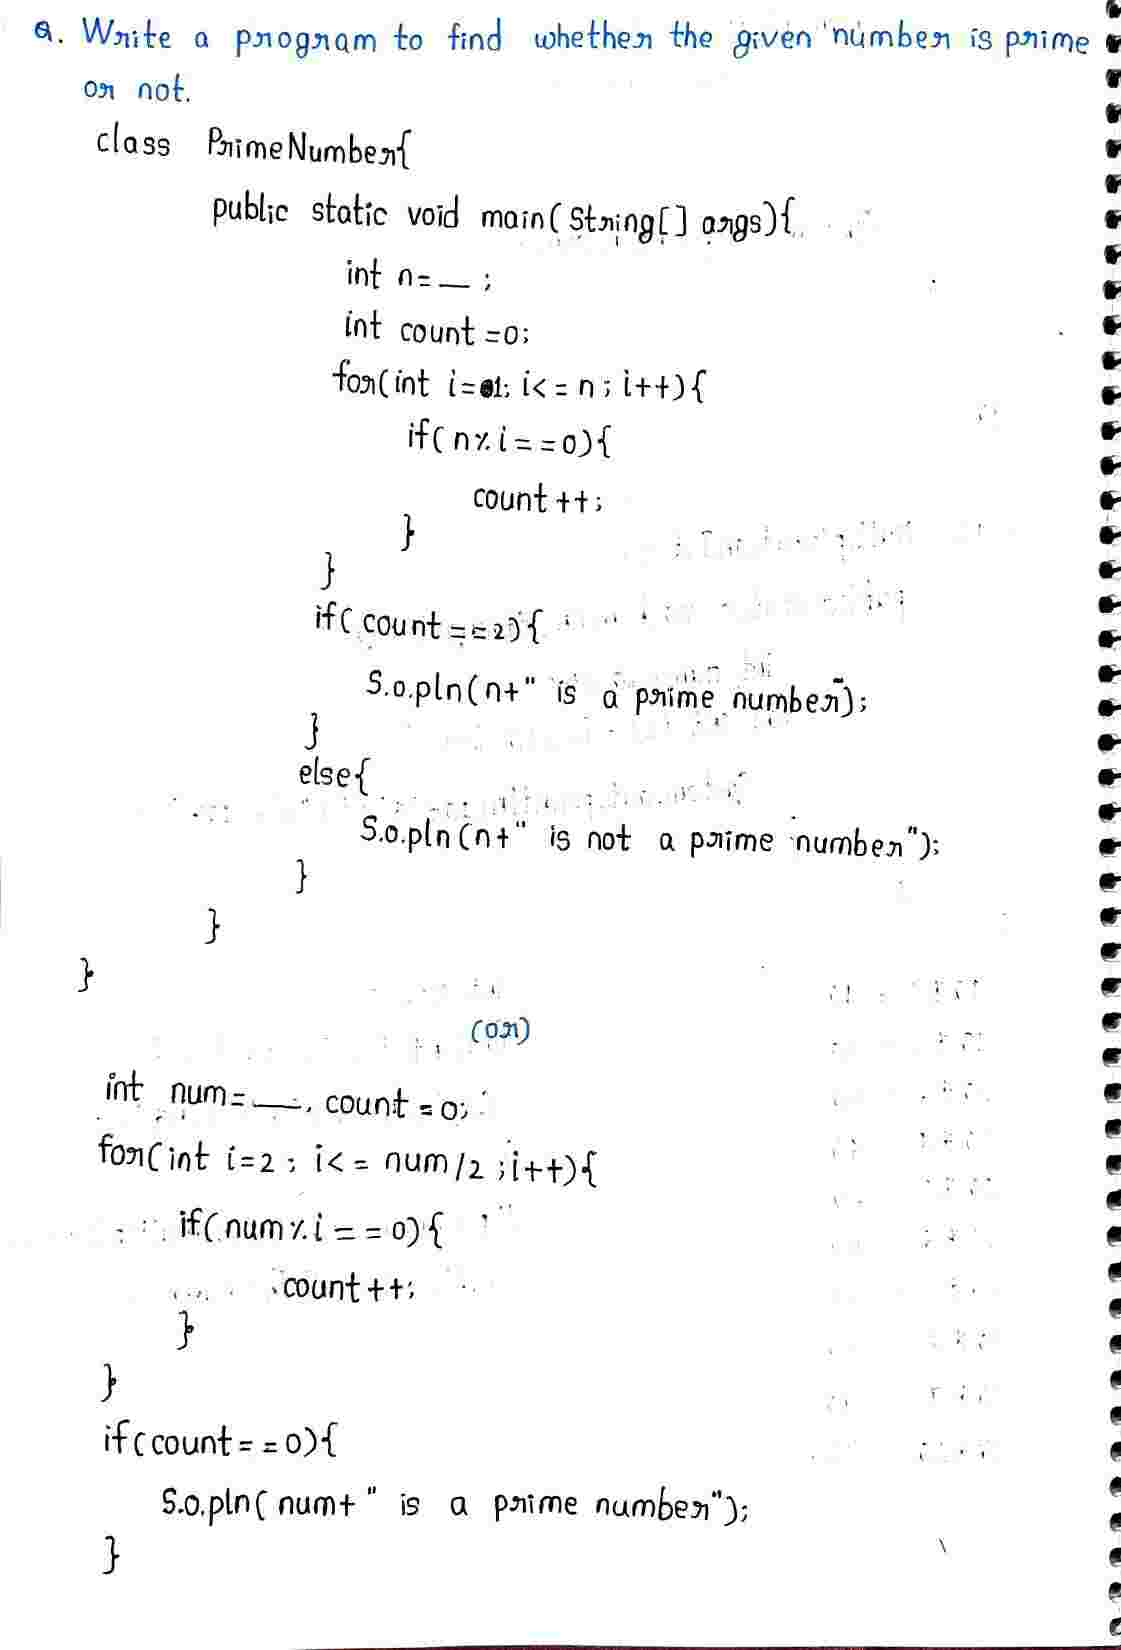 Q. Write a program to find whether the given number is prime
or not.
class PrimeNumber{
public static void main(String[] args){
int n=__;
int count=0;
for(int i=1; i<=n; i++){
if(n%i==0){
count++;
}
}
if(count==2){
S.o.pln(n+" is a prime number");
}
else{
S.o.pln(n+" is not a prime number");
}
}
}
(or)
int num=__, count=0;
for(int i=2; i<=num/2; i++){
if(num%i==0){
count++;
}
}
if(count==0){
S.o.pln(num+" is a prime number");
}